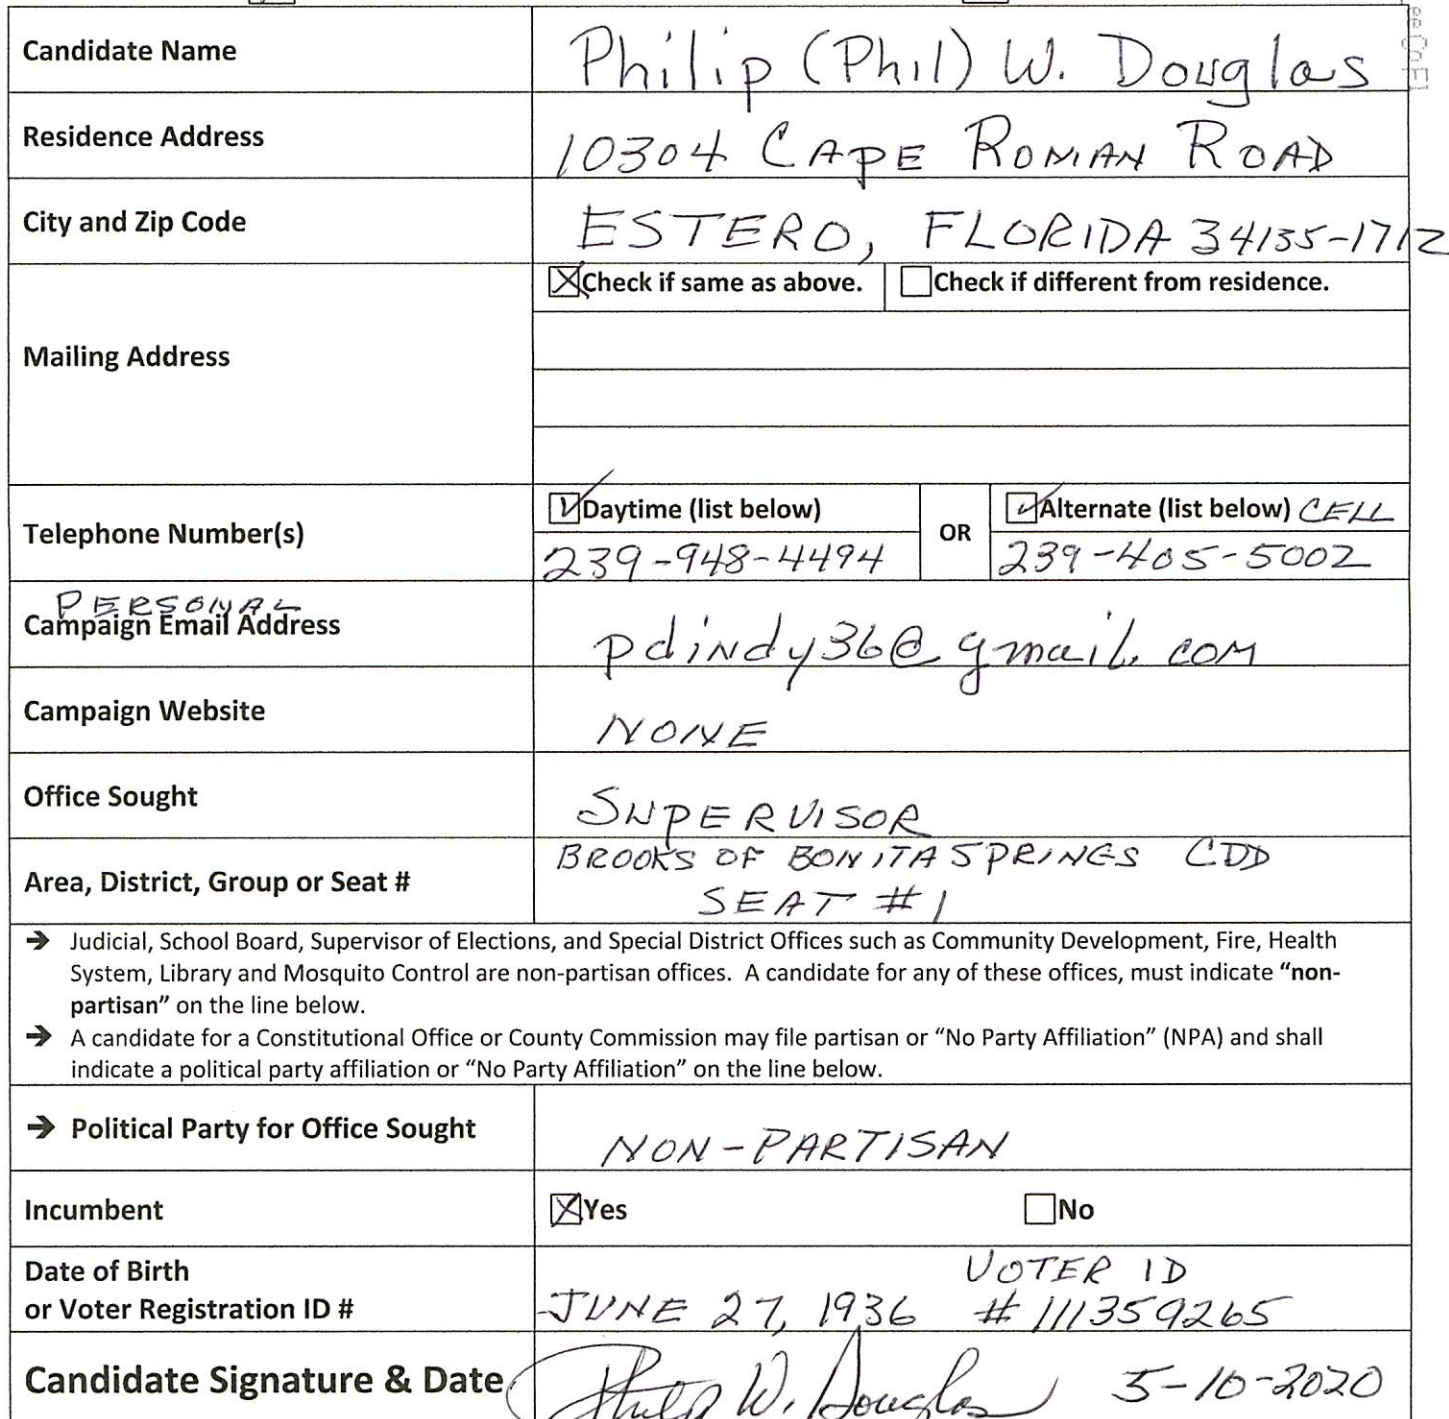 Candidate Name Philip (Phil) W. Douglas
Residence Address 10304 CAPE ROMAN ROAD
City and Zip Code ESTERO, FLORIDA 34135-1712
Check if same as above. Check if different from residence.
Mailing Address
Daytime (list below) OR Alternate (list below) CELL
Telephone Number(s) 239-948-4494 239-405-5002
PERSONAL
Campaign Email Address pdindy36@gmail.com
Campaign Website NONE
Office Sought SUPERVISOR
BROOKS OF BONITA SPRINGS CDD
Area, District, Group or Seat #
SEAT #1
➔ Judicial, School Board, Supervisor of Elections, and Special District Offices such as Community Development, Fire, Health
System, Library and Mosquito Control are non-partisan offices. A candidate for any of these offices, must indicate "non-
partisan" on the line below.
➔ A candidate for a Constitutional Office or County Commission may file partisan or "No Party Affiliation" (NPA) and shall
indicate a political party affiliation or "No Party Affiliation" on the line below.
➔ Political Party for Office Sought NON-PARTISAN
Incumbent Yes No
Date of Birth VOTER ID
or Voter Registration ID # JUNE 27, 1936 #111359265
Candidate Signature & Date Philip W. Douglas 5-10-2020